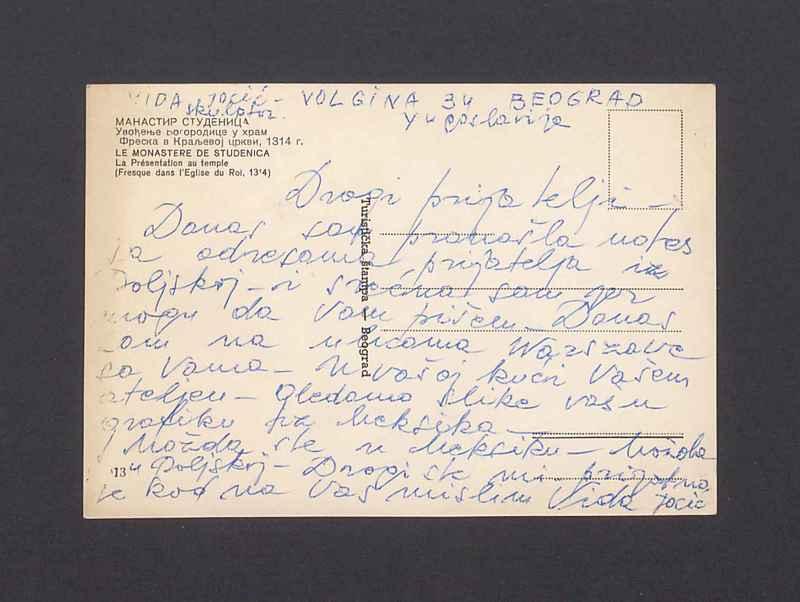 VIDA Jocić - VOLGINA 34 BEOGRAD
skulptor. Yugoslavija
МАНАСТИР СТУДЕНИЦА
Увођење богородице у храм
Фреска в Краљевој цркви, 1314 г.
LE MONASTERE DE STUDENICA
La Présentation au temple
(Fresque dans l'Eglise du Roi, 1314)
Turistička štampa — Beograd
Dragi prijatelji -
Danas sam pronašla notes
sa adresama prijatelja iz
Poljskoj - i srećna sam jer
mogu da Vam pišem - Danas
sam na ulicama Warszave
sa Vama - U vašoj kući Vašem
ateljeu - Gledamo slike vašu
grafiku iz Meksika -
Možda ste u Meksiku - Možda
u Poljskoj - Dragi ste mi prijatno
je kod na Vas mislim Vida Jocić
13